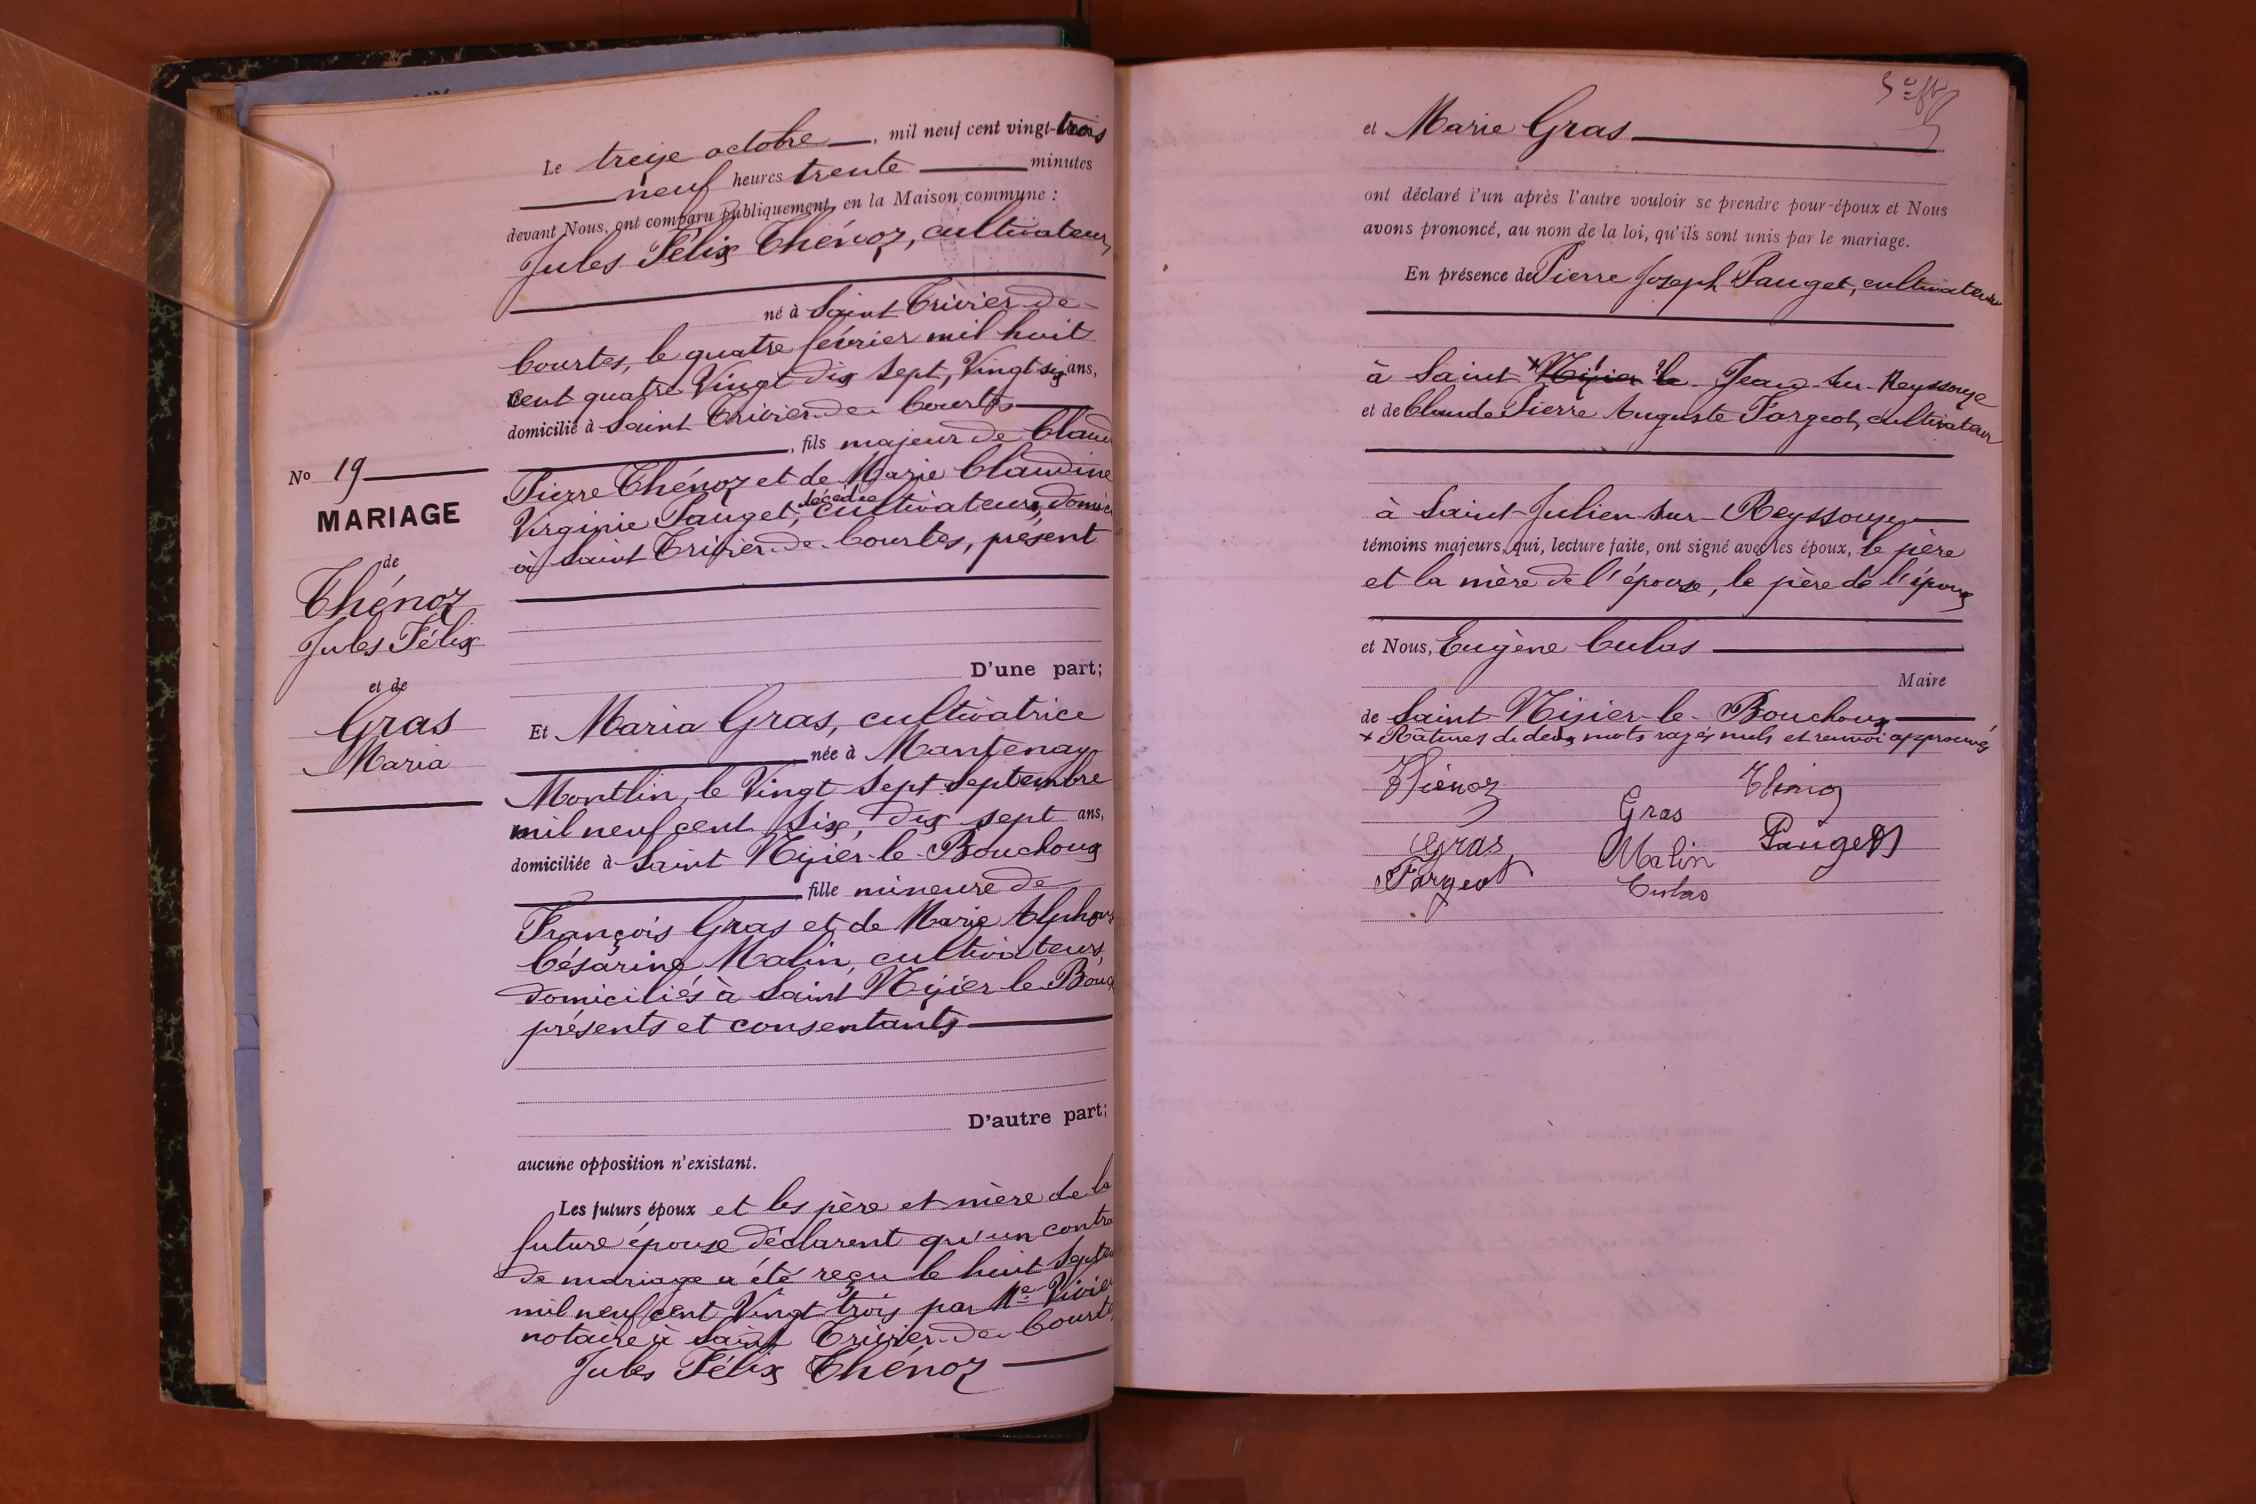 Le treize octobre, mil neuf cent vingt-trois
neuf heures trente minutes
devant Nous, ont comparu publiquement en la Maison commune :
Jules Félix Thénoz, cultivateur,
né à Saint Trivier-de-
Courtes, le quatre février mil huit
cent quatre Vingt dix sept, Vingt six ans,
domicilié à Saint Trivier-de-Courtes
, fils majeur de Claud
Pierre Thénoz et de Marie Claudine
Virginie Pauget, décédée cultivateurs, domic
à Saint Trivier-de-Courtes, présent
D'une part;
Et Maria Gras, cultivatrice
née à Mantenay
Montlin, le Vingt sept septembre
mil neuf cent six, dix sept ans,
domiciliée à Saint Nizier-le-Bouchoux
fille mineure de
François Gras et de Marie Alphons
Césarine Malin, cultivateurs,
domiciliés à Saint Nizier-le-Bouc
présents et consentants
D'autre part;
aucune opposition n'existant.
Les futurs époux et les père et mère de la
future épouse déclarent qu'un contra
de mariage a été reçu le huit septem
mil neuf cent Vingt trois par Me Vivier
notaire à Saint Trivier-de-Courtes
Jules Félix Thénoz
No 19
MARIAGE
de
Thénoz
Jules Félix
et de
Gras
Maria
et Marie Gras
ont déclaré l'un après l'autre vouloir se prendre pour époux et Nous
avons prononcé, au nom de la loi, qu'ils sont unis par le mariage.
En présence de Pierre Joseph Pauget, cultivateur
à Saint × Nizier le Jean-sur-Reyssouze
et de Claude Pierre Auguste Fargeot, cultivateur
à Saint-Julien-sur-Reyssouze
témoins majeurs, qui, lecture faite, ont signé avec les époux, le père
et la mère de l'épouse, le père de l'époux
et Nous, Eugène Culas
Maire
de Saint-Nizier-le-Bouchoux
× Râtures de deux mots rayés nuls et renvoi approuvés
Thénoz
Gras
Thénoz
Gras
Malin
Pauget
Fargeot
Culas